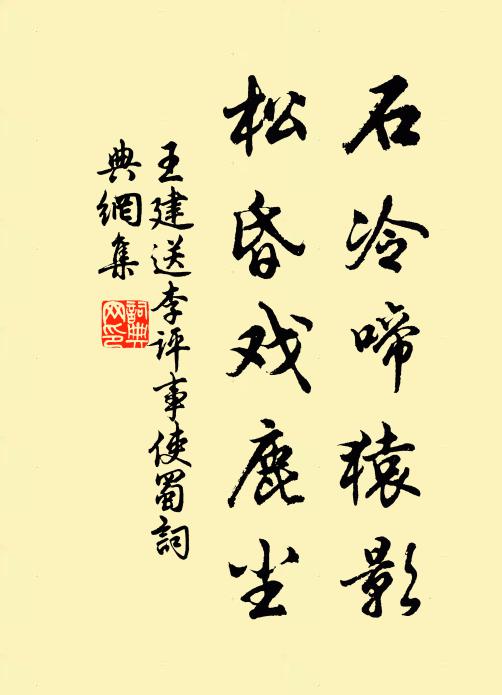 石冷啼猿影
松昏戏鹿尘
王建送李评事使蜀詞
典網集
詞典
网印